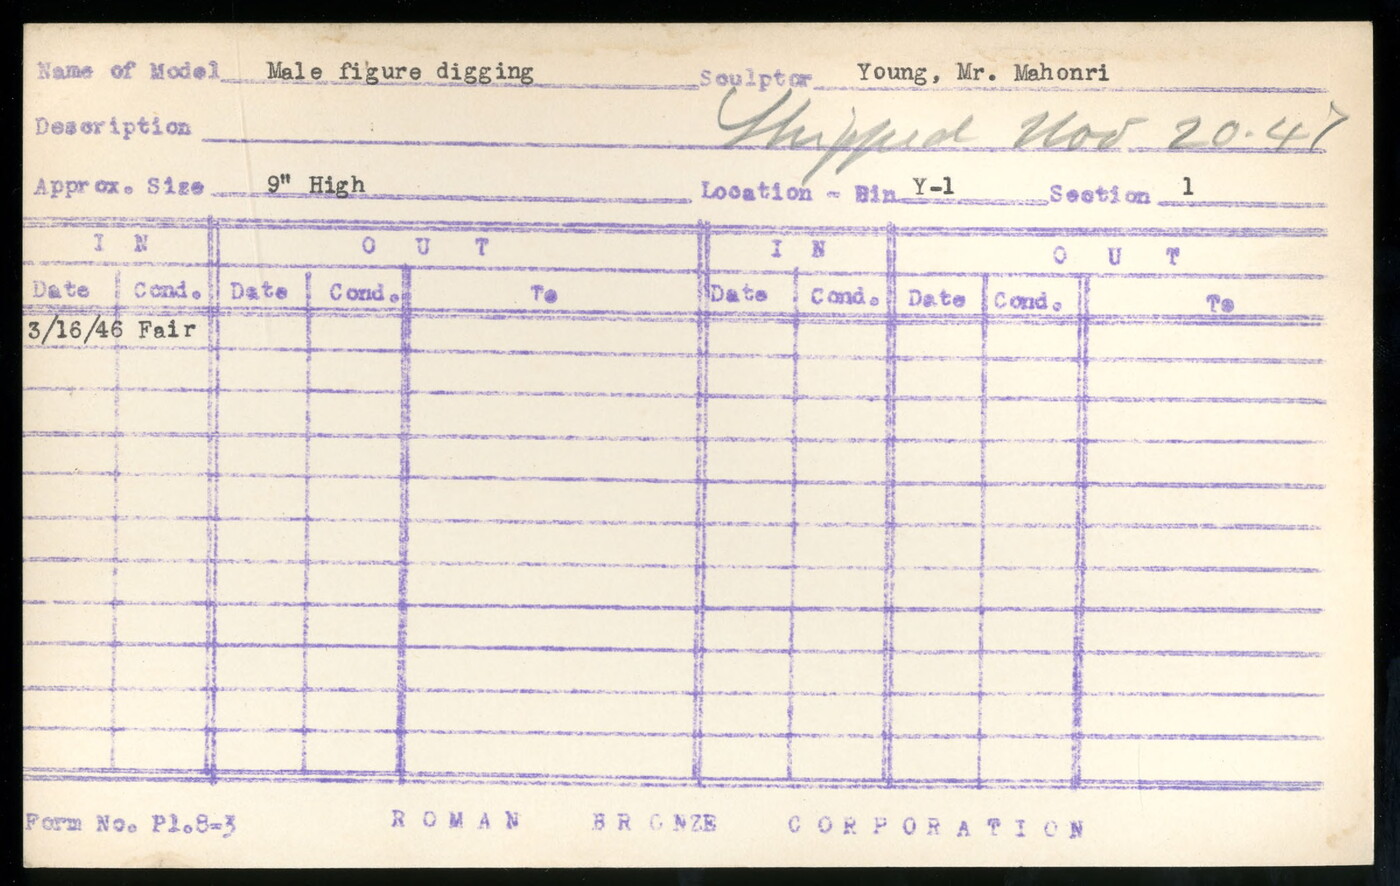 Name of Model Male figure digging Sculptor Young, Mr. Mahonri
Description Shipped Nov 20-47
Approx. Size 9" High Location - Bin Y-1 Section 1
I N O U T I N O U T
Date Cond. Date Cond. To Date Cond. Date Cond. To
3/16/46 Fair
Form No. Pl.8-3 ROMAN BRONZE CORPORATION